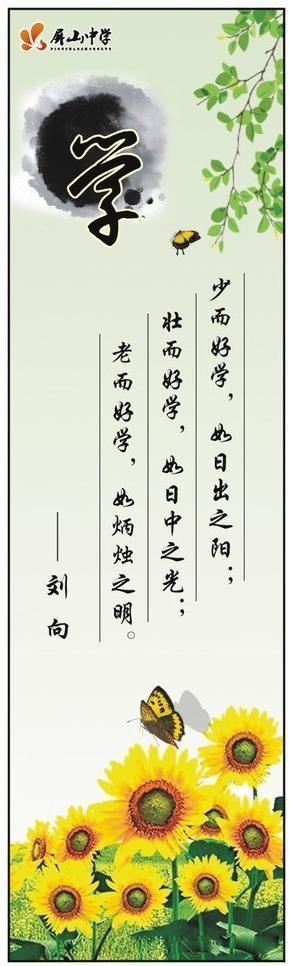 屏山中学
PINGSHANZHONGXUE
学
少而好学，如日出之阳；
壮而好学，如日中之光；
老而好学，如炳烛之明。
——刘向